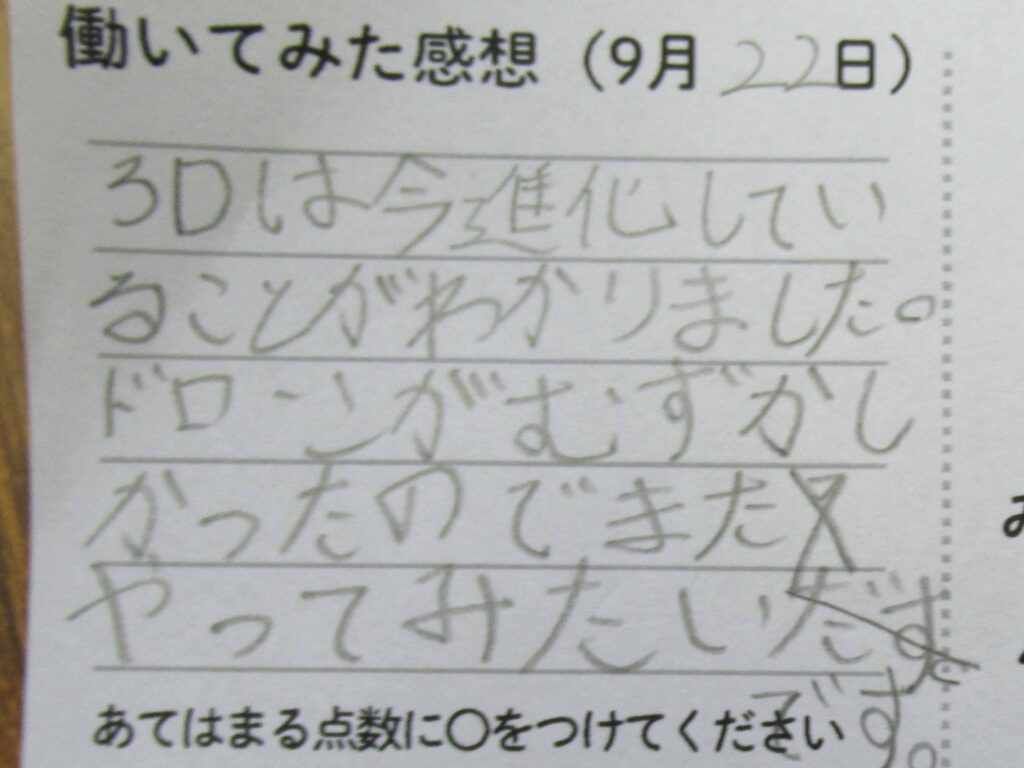 働いてみた感想（9月22日）
3Dは今進化してい
ることがわかりました。
ドローンがむずかし
かったのでまた
やってみたい
です。
あてはまる点数に○をつけてください